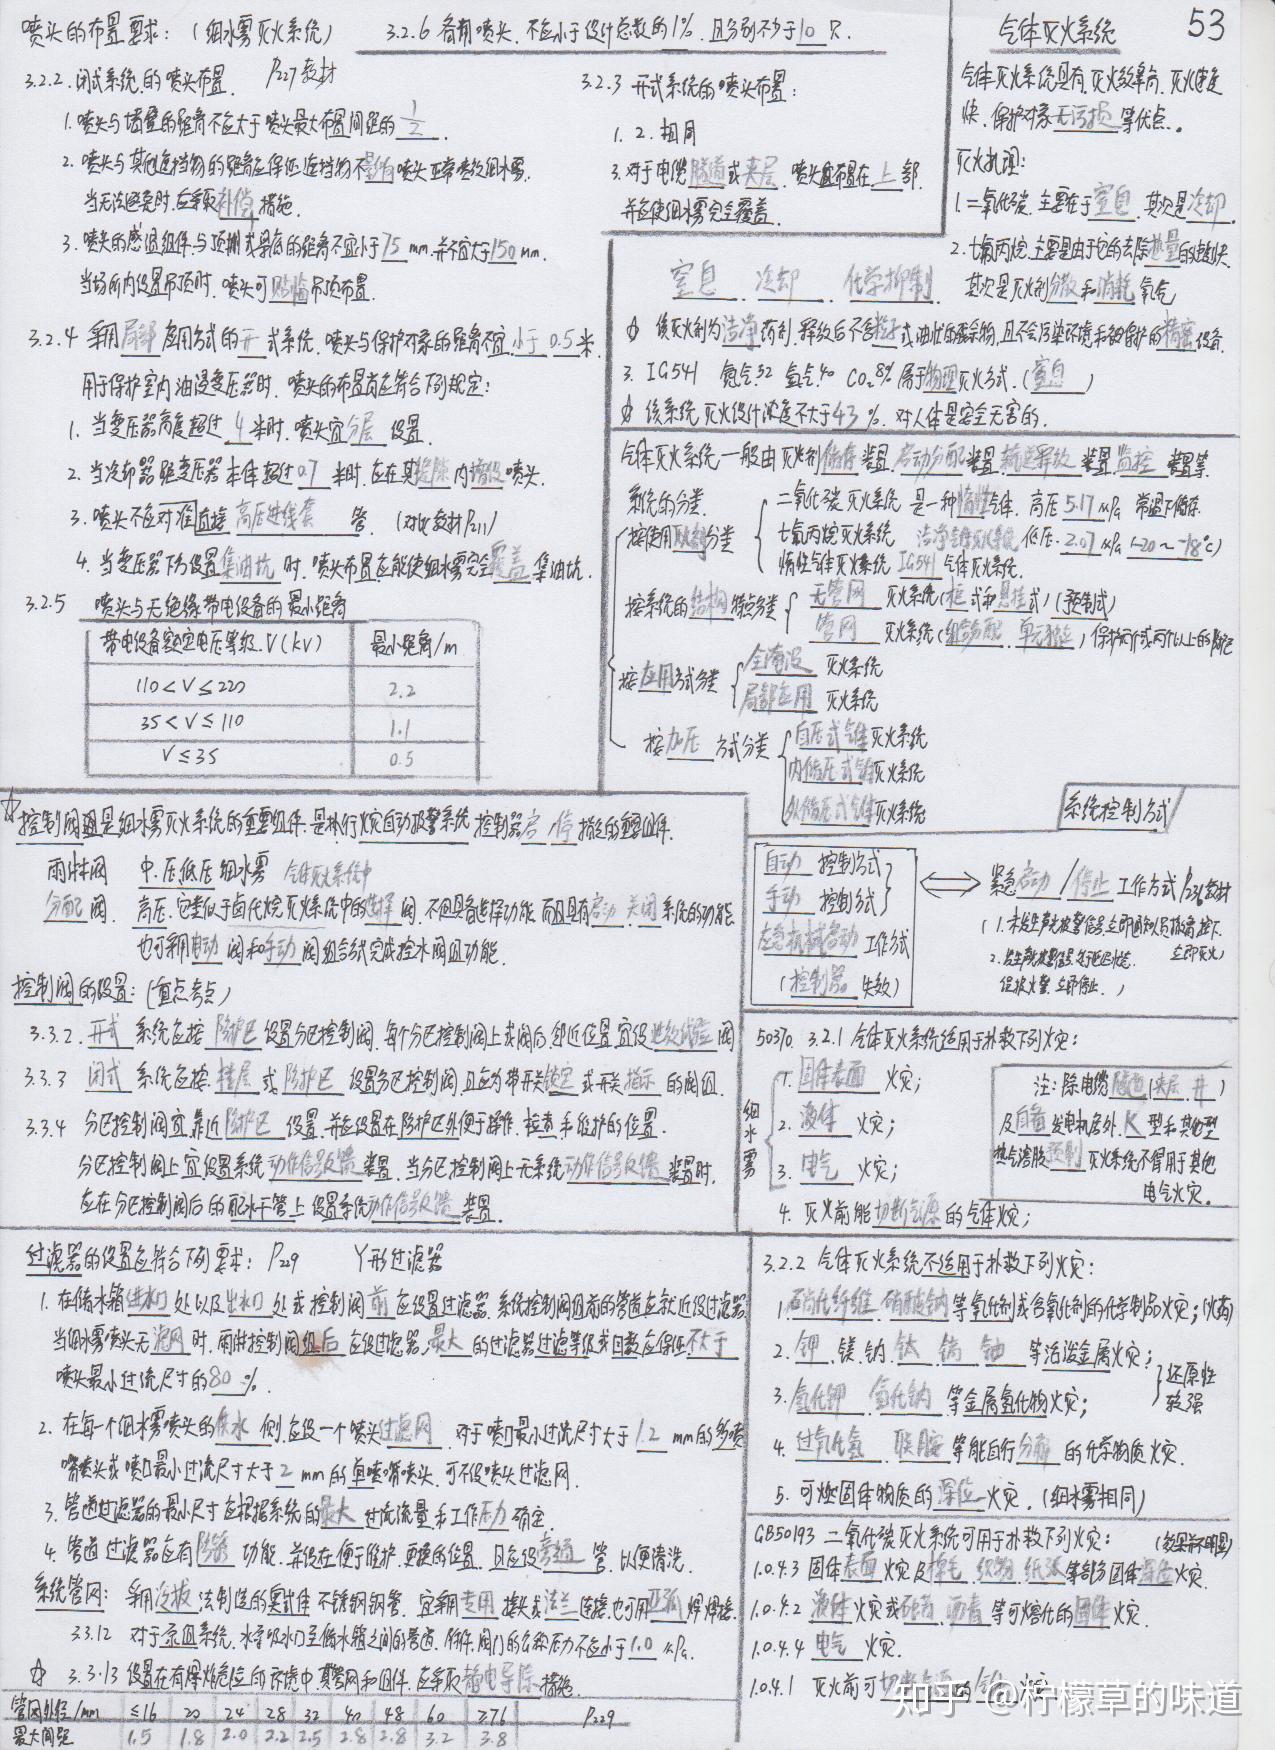 53
喷头的布置要求：（细水雾灭火系统）
3.2.6 备用喷头，不应小于设计总数的1%，且分别不少于10只．
3.2.2 闭式系统的喷头布置． P227教材
1. 喷头与墙壁的距离不应大于喷头最大布置间距的1/2．
2. 喷头与其他遮挡物的距离应保证遮挡物不影响喷头正常喷放细水雾．
当无法避免时，应采取补偿措施．
3. 喷头的感温组件与顶棚或梁底的距离不宜小于75mm，并不宜大于150mm．
当场所内设置吊顶时，喷头可贴临吊顶布置．
3.2.3 开式系统的喷头布置：
1. 2. 相同
3. 对于电缆隧道或夹层，喷头宜布置在上部，
并应使细水雾完全覆盖．
3.2.4 采用局部应用方式的开式系统，喷头与保护对象的距离不宜小于0.5米．
用于保护室内油浸变压器时，喷头的布置尚应符合下列规定：
1. 当变压器高度超过4米时，喷头宜分层设置．
2. 当冷却器距变压器本体超过0.7米时，应在其间隙内增设喷头．
3. 喷头不应对准直接高压进线套管．（对比教材P211）
4. 当变压器下方设置集油坑时，喷头布置应能使细水雾完全覆盖集油坑．
3.2.5 喷头与无绝缘带电设备的最小距离
带电设备额定电压等级．V（kV） 最小距离/m
110＜V≤220 2.2
35＜V≤110 1.1
V≤35 0.5
气体灭火系统
气体灭火系统具有，灭火效率高，灭火速度
快，保护对象无污损等优点．
灭火机理：
1. 二氧化碳，主要在于窒息，其次是冷却．
2. 七氟丙烷，主要是由于它的去除热量的速度快．
其次是灭火剂分散和消耗氧气
窒息 冷却 化学抑制
☆ 该灭火剂为洁净药剂，释放后不含粒子或油状的残余物，且不会污染环境和被保护的精密设备．
3. IG541 氮气52 氩气40 CO₂8% 属于物理灭火方式．（窒息）
☆ 该系统灭火设计浓度不大于43%，对人体是安全无害的．
气体灭火系统一般由灭火剂储存装置，启动分配装置，输送释放装置，监控装置等．
系统的分类．
按使用灭火剂分类
二氧化碳灭火系统 是一种惰性气体，高压5.17MPa 常温下储存
七氟丙烷灭火系统 洁净气体灭火系统 低压．2.07MPa（-20～-18℃）
惰性气体灭火系统 IG541 气体灭火系统．
按系统的结构特点分类
无管网灭火系统（柜式和悬挂式）（预制式）
管网灭火系统（组合分配，单元独立）保护两个或两个以上的防护区
按应用方式分类
全淹没灭火系统
局部应用灭火系统
按加压方式分类
自压式气体灭火系统
内储压式气体灭火系统
外储压式气体灭火系统
☆ 控制阀组是细水雾灭火系统的重要组件，是执行火灾自动报警系统控制器启/停指令的重要组件．
雨淋阀 中．压，低压细水雾 气体灭火系统中
分配阀． 高压．它类似于卤代烷灭火系统中的选择阀，不但具备选择功能，而且具有启动、关闭系统的功能
也可采用电动阀和手动阀组合式完成控水阀组功能．
控制阀的设置：（重点考点）
3.3.2. 开式系统应按防护区设置分区控制阀，每个分区控制阀上或阀后邻近位置宜设泄放试验阀
3.3.3 闭式系统应按楼层或防护区设置分区控制阀，且应为带开关锁定或开关指示的阀组．
3.3.4 分区控制阀宜靠近防护区设置，并应设置在防护区外便于操作、检查和维护的位置．
分区控制阀上宜设置系统动作信号反馈装置，当分区控制阀上无系统动作信号反馈装置时，
应在分区控制阀后的配水干管上设置系统动作信号反馈装置．
系统控制方式
自动控制方式
手动控制方式
应急机械启动工作方式
（控制器失效）
紧急启动/停止工作方式P236教材
（1. 未发生声光报警信号，立即通知人员撤离，按下，
立即灭火）
误报火警，立即停止．）
50370 3.2.1 气体灭火系统适用于扑救下列火灾：
细水雾
1. 固体表面火灾；
2. 液体火灾；
3. 电气火灾；
4. 灭火前能切断气源的气体火灾；
注：除电缆隧道（夹层、井）
及自备发电机房外，K型和其他型
热气溶胶预制灭火系统不得用于其他
电气火灾．
过滤器的设置应符合下列要求：P229 Y形过滤器
1. 在储水箱进水口处以及出水口处或控制阀前应设置过滤器，系统控制阀组前的管道应就近设过滤器
当细水雾喷头无滤网时，雨淋控制阀组后应设过滤器，最大的过滤器过滤等级或目数应保证不大于
喷头最小过流尺寸的80%．
2. 在每一个细水雾喷头的供水侧应设一个喷头过滤网，对于喷口最小过流尺寸大于1.2mm的多喷
嘴喷头或喷口最小过流尺寸大于2mm的单喷嘴喷头，可不设喷头过滤网．
3. 管道过滤器的最小尺寸应根据系统的最大过流流量和工作压力确定．
4. 管道过滤器应有防锈功能，并设在便于维护、更换的位置，且应设旁通管，以便清洗．
系统管网：采用冷拔法制造的奥氏体不锈钢钢管，宜采用专用接头或法兰连接，也可用亚弧焊焊接．
3.3.12 对于泵组系统，水泵吸水口至储水箱之间的管道、附件、阀门的公称压力不应小于1.0MPa．
☆ 3.3.13 设置在有爆炸危险的环境中，其管网和组件，应采取静电导除措施．
管网外径/mm ≤16 20 24 28 32 40 48 60 ≥76 P229
最大间距 1.5 1.8 2.0 2.2 2.5 2.8 2.8 3.2 3.8
3.2.2 气体灭火系统不适用于扑救下列火灾：
1. 硝化纤维、硝酸钠等氧化剂或含氧化剂的化学制品火灾；（火药）
2. 钾、镁、钠、钛、镐、铀等活泼金属火灾；
3. 氢化钾、氢化钠等金属氢化物火灾；
还原性较强
4. 过氧化氢、联胺等能自行分解的化学物质火灾．
5. 可燃固体物质的深位火灾．（细水雾相同）
GB50193 二氧化碳灭火系统可用于扑救下列火灾：（效果并不明显）
1.0.4.3 固体表面火灾及棉毛、织物、纸张等部分固体深位火灾．
1.0.4.2 液体火灾或石蜡、沥青等可熔化的固体火灾．
1.0.4.4 电气火灾．
1.0.4.1 灭火前可切断气源的气体火灾
知乎 @柠檬草的味道